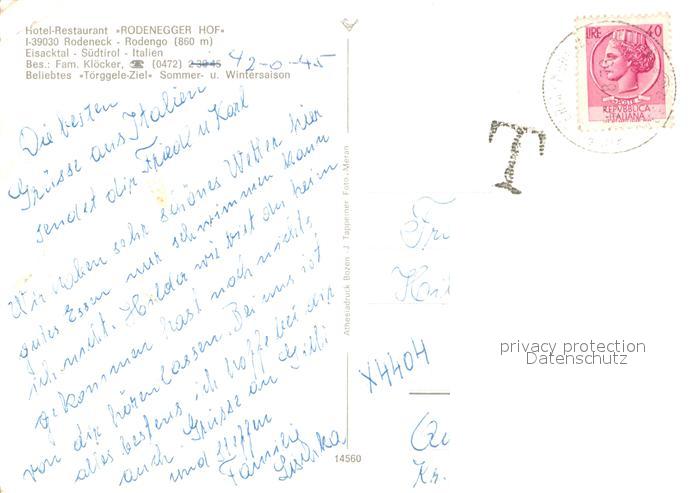 Hotel-Restaurant »RODENEGGER HOF«
I-39030 Rodeneck - Rodengo (860 m)
Eisacktal - Südtirol - Italien
Bes.: Fam. Klöcker, ☎ (0472) 2 30 45 42-0-45
Beliebtes »Törggele-Ziel« Sommer- u. Wintersaison
Die besten
Grüsse aus Italien
sendet dir Friedl u Karl
Wir haben sehr schönes Wetter hier
gutes Essen nur schwimmen kann
ich nicht. Hilde wie bist du heim
gekommen hast noch nichts
von dir hören lassen. Bei uns ist
alles bestens ich hoffe bei dir
auch Grüsse an
und Steffen
Familie
Athesiadruck Bozen - J. Tappeiner Foto-Meran
14560
LIRE 40
POSTE
REPVBBLICA
ITALIANA
T
X4404
Kr.
privacy protection
Datenschutz